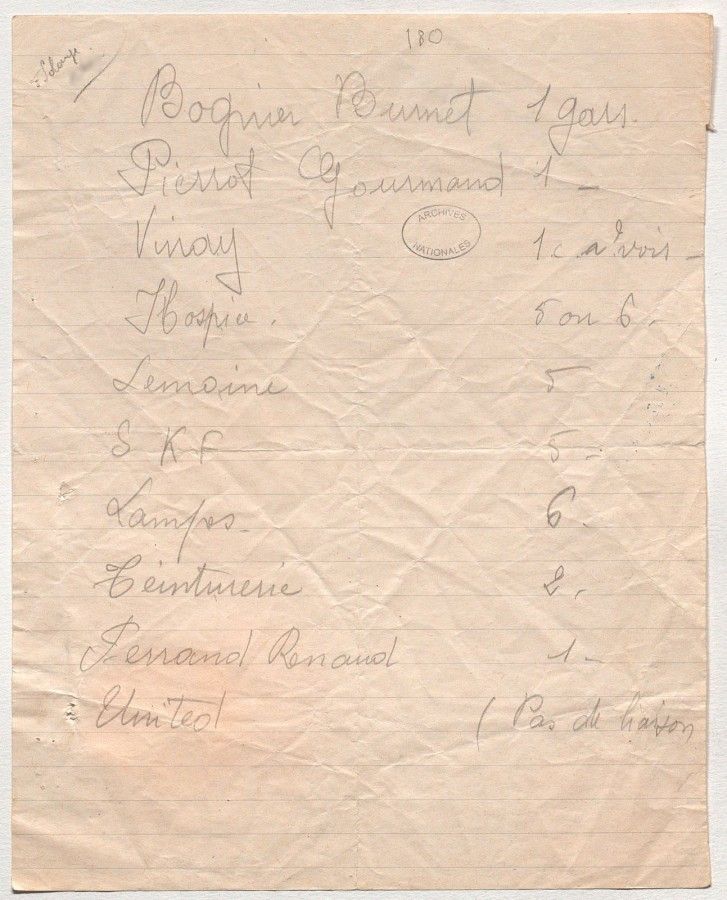 180
Solange
Bognier Burnet 1 gars.
Pierrot Gourmand 1 -
ARCHIVES NATIONALES
Vinay 1 c. a voir -
Hospice. 5 ou 6 -
Lemoine 5
S K F 5 -
Lampes. 6 -
Teinturerie 2.
Ferrand Renaud 1 -
United ( Pas de liaison